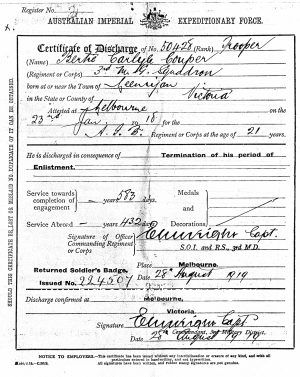 Register No.
AUSTRALIAN IMPERIAL EXPEDITIONARY FORCE.
Certificate of Discharge of No. 50428 (Rank) Trooper
(Name) Carlyle Couper
(Regiment or Corps) 3rd M. G. Squadron
born at or near the Town of
in the State or County of Victoria
Attested at Melbourne
23rd Jan. to 18 for the
A. I. F. Regiment or Corps at the age of 21 years.
He is discharged in consequence of Termination of his period of
Enlistment.
Service towards completion of engagement 583 days
Medals and Decorations
Service Abroad 432 days
Signature of Officer Commanding Regiment or Corps Capt.
S.O.I. and RS., 3rd M.D.
Returned Soldier's Badge.
Issued No. 224507
Place Melbourne.
Date 28th August 1919
Discharge confirmed at Melbourne,
Victoria.
Signature Capt
Date August 1919
NOTICE TO EMPLOYERS.
SHOULD THIS CERTIFICATE BE LOST OR MISLAID NO DUPLICATE OF IT CAN BE OBTAINED.